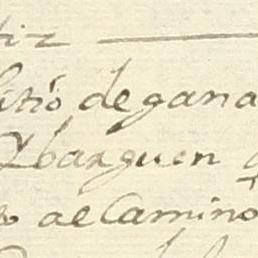 tiz
sitio de gana
Ybarguen
o al Camino